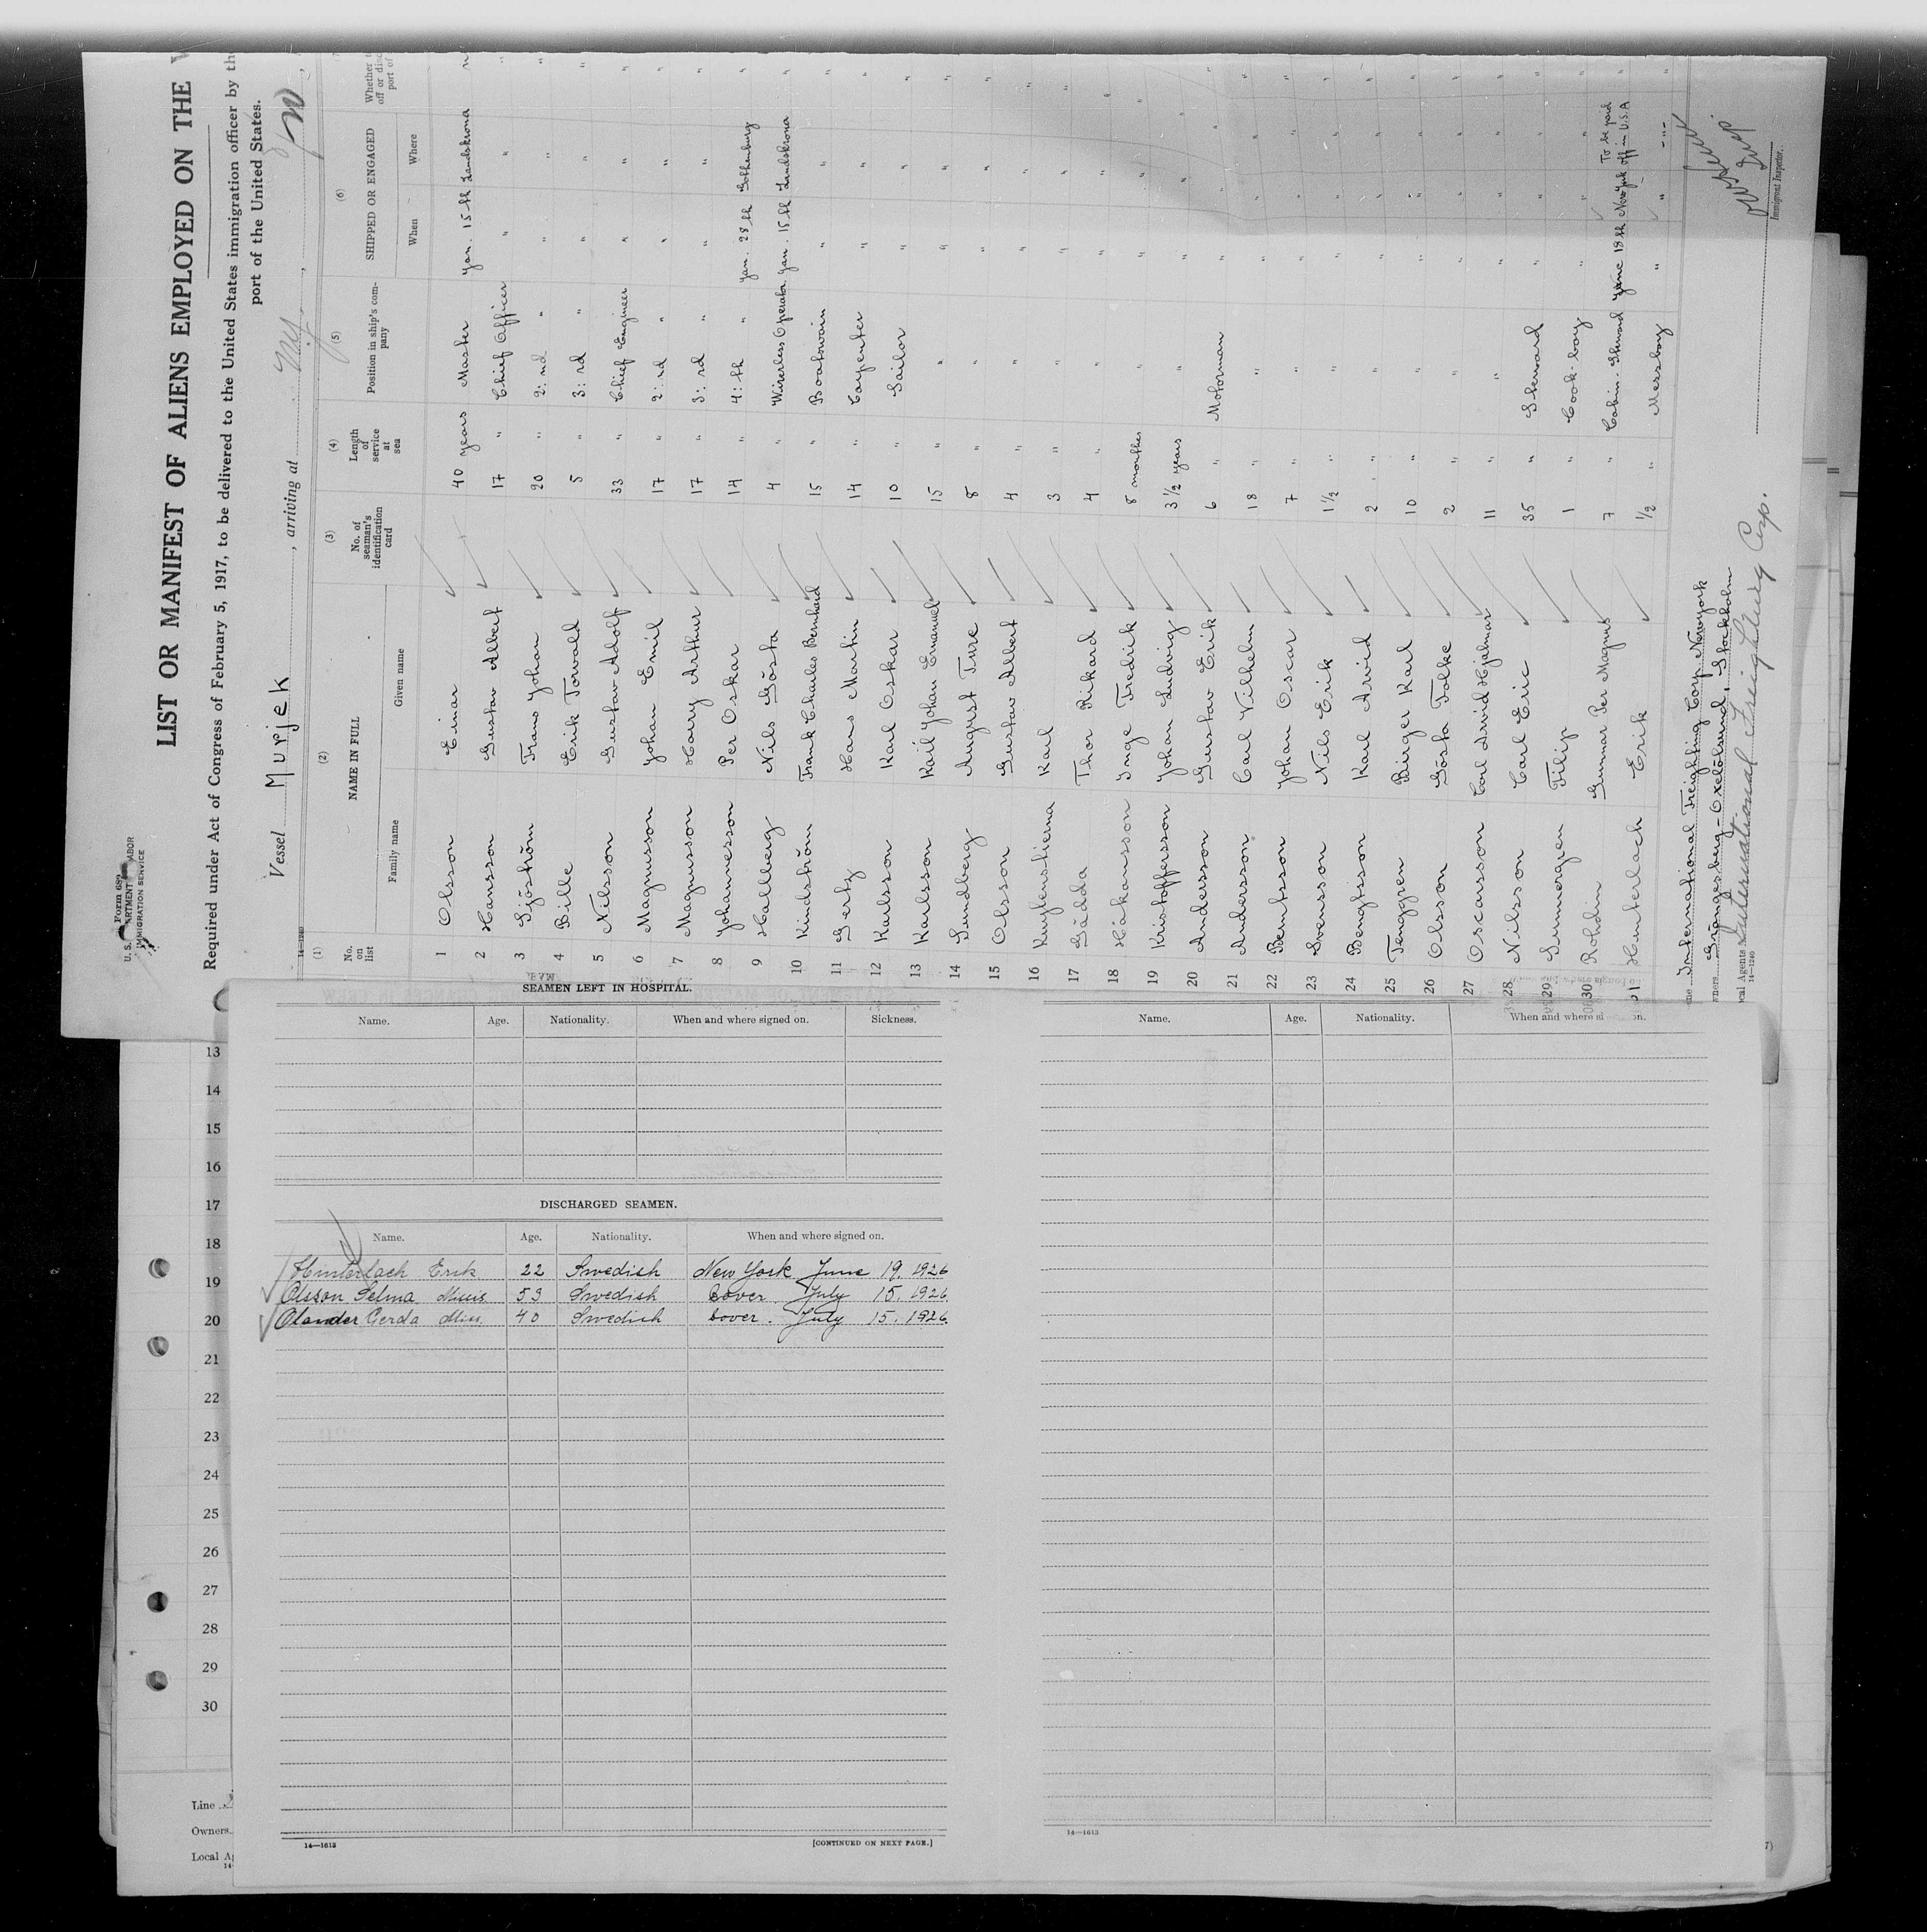 Form 689
U. S. DEPARTMENT LABOR
IMMIGRATION SERVICE
LIST OR MANIFEST OF ALIENS EMPLOYED ON THE
Required under Act of Congress of February 5, 1917, to be delivered to the United States immigration officer by th
port of the United States.
Vessel Murjek, arriving at
14—1240
(1) (2) (3) (4) (5) (6)
No. on list NAME IN FULL Family name Given name No. of seaman's identification card Length of service at sea Position in ship's company SHIPPED OR ENGAGED When Where Whether
1 Olsson Einar 40 years Master Jan. 15th Landskrona
2 Hansson Gustav Albert 17 " Chief Officer " "
3 Sjöström Frans Johan 20 " 2:nd " " "
4 Bille Erik Torvald 5 " 3:rd " " "
5 Nilsson Gustav Adolf 33 " Chief Engineer " "
6 Magnusson Johan Emil 17 " 2:nd " " "
7 Magnusson Harry Arthur 17 " 3:rd " " "
8 Johannesson Per Oskar 14 " 4:th " Jan. 28th Gothenburg
9 Hallberg Nils Gösta 4 " Wireerless Operator Jan. 15th Landskrona
10 Kindström Frank Charles Bernhard 15 " Boatswain " "
11 Gertz Hans Martin 14 " Carpenter " "
12 Karlsson Karl Oskar 10 " Sailor " "
13 Karlsson Karl Johan Emanuel 15 " " " "
14 Sundberg August Ture 8 " " " "
15 Olsson Gustav Albert 4 " " " "
16 Kuylenstierna Karl 3 " " " "
17 Gädda Thor Rikard 4 " " " "
18 Håkansson Inge Fredrik 8 months " " "
19 Kristoffersson Johan Ludvig 3 1/2 years " " "
20 Andersson Gustav Erik 6 " Motorman " "
21 Andersson Carl Vilhelm 18 " " " "
22 Berntsson Johan Oscar 7 " " " "
23 Svensson Nils Erik 1 1/2 " " " "
24 Bengtsson Karl Arvid 2 " " " "
25 Tenggren Birger Karl 10 " " " "
26 Olsson Gösta Folke 2 " " " "
27 Oscarsson Carl Arvid Hjalmar 11 " " " "
28 Nilsson Carl Eric 35 " Steward " "
29 Sunnergren Filip 1 " Cook-boy " "
30 Rohdin Gunnar Per Magnus 7 " Cabin-Steward June 19th New York To be paid off in U.S.A
31 Hunterlach Erik 1/2 " Messboy " "
International Freighting Corp Newyork
Grängesberg-Oxelösund, Stockholm
Local Agents International Freighting Corp.
14—1240
Immigrant Inspector.
SEAMEN LEFT IN HOSPITAL.
Name. Age. Nationality. When and where signed on. Sickness.
DISCHARGED SEAMEN.
Name. Age. Nationality. When and where signed on.
Hunterlach Erik 22 Swedish New York June 19. 1926
Olsson Selma Miss. 53 Swedish Dover July 15. 1926.
Olander Gerda Miss 40 Swedish Dover. July 15. 1926.
14—1613
[CONTINUED ON NEXT PAGE.]
Name. Age. Nationality. When and where si on.
14—1613
13
14
15
16
17
18
19
20
21
22
23
24
25
26
27
28
29
30
Line
Owners
Local A
14